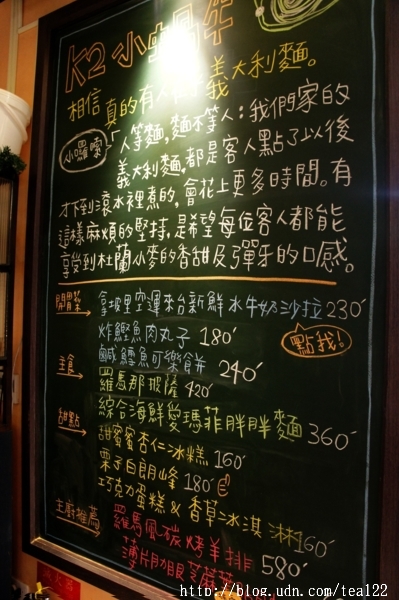 K2 小蝸牛
相信真的有人 義大利麵。
小囉嗦
「人等麵,麵不等人:我們家的
義大利麵,都是客人點了以後
才下到滾水裡煮的,會花上更多時間。有
這樣麻煩的堅持,是希望每位客人都能
享受到杜蘭小麥的香甜及彈牙的口感。
開胃菜 → 拿坡里空運來台新鮮水牛奶沙拉 230
炸鰹魚肉丸子 180
點我!
鹹鱈魚可樂餅 240
主食 → 羅馬那披薩 420
綜合海鮮愛瑪菲胖胖麵 360
甜點 → 甜蜜蜜杏仁冰糕 160
栗子白朗峰 180
巧克力蛋糕 & 香草冰淇淋 160
主廚推薦 → 羅馬風碳烤羊排 580
薄片
http://blog.udn.com/tea122